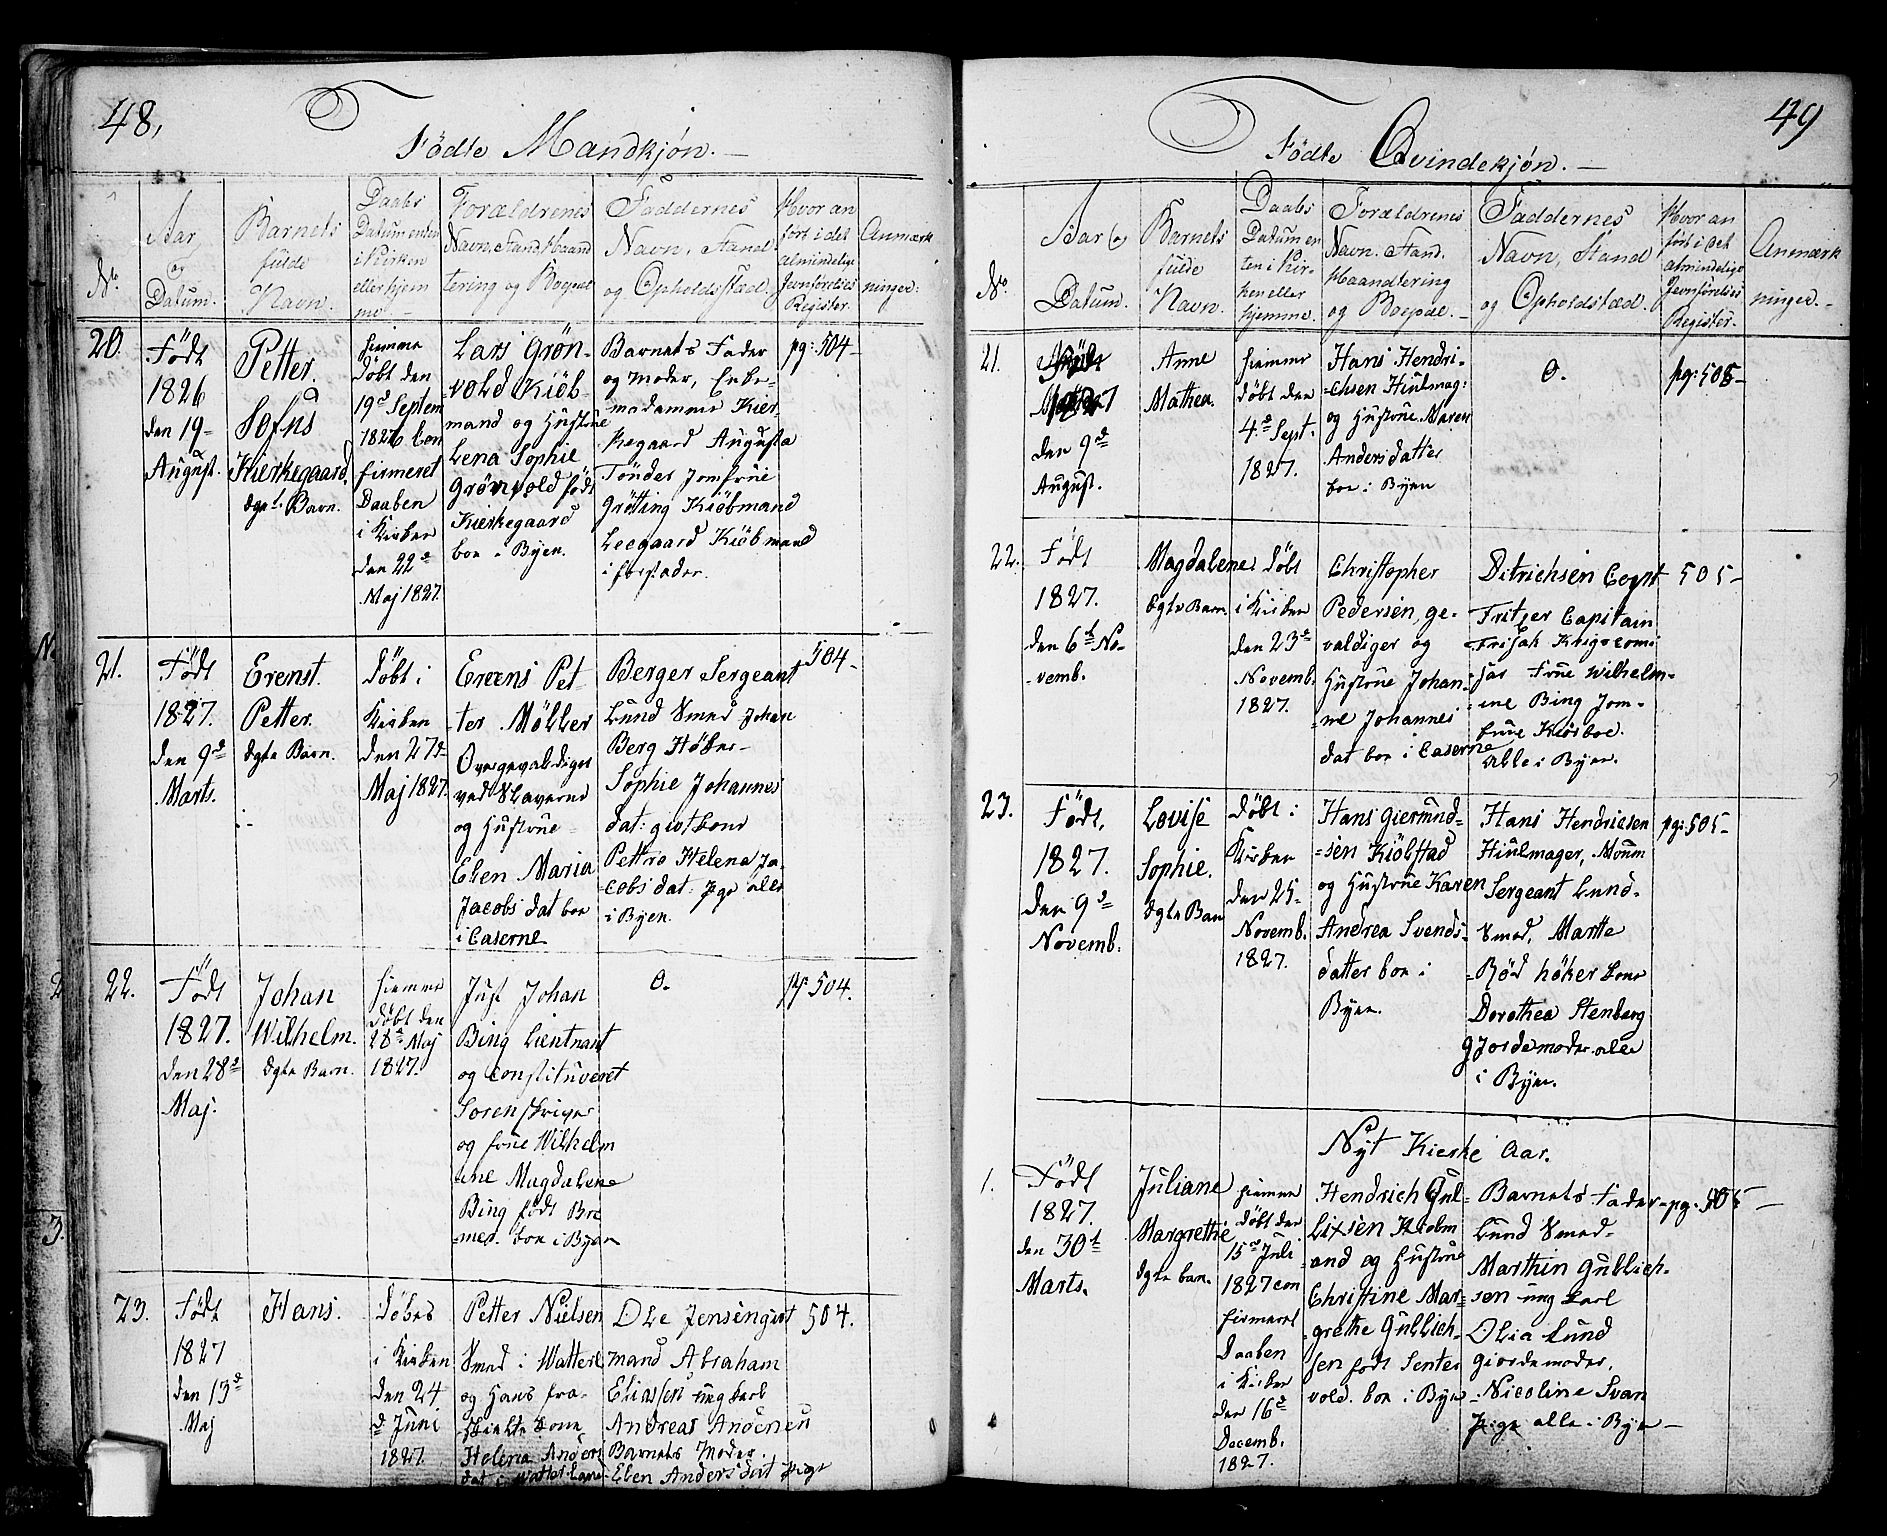 48,
Födte Mandkjön. —
No.
Aar
og
Datum.
Barnets
fulde
Navn.
Daabs
Datum enten
i Kirken
eller hjem
me —
Forældrenes
Navn, Stand, Haand
tering og Boepæl
Faddernes
Navn, Stand
og Opholdsstæd.
Hvor an
fört i det
almindelige
Jevnförelses
Register.
Anmærk
ninger:
20.
Födt
1826
den 19-
August.
Petter
Sofus
Kierkegaard.
ægte Barn.
hiemme
döbt den
19d Septem
1826 Con
firmeret
Daaben
i Kirken
den 22d
Maj 1827.
Lars Grön-
vold Kiöb
mand og Hustrue
Lena Sophie
Grönvold födt
Kierkegaard
boe i Byen.
Barnets Fader
og Moder, Enke-
madamme Kier-
kegaard Augusta
Tönder Jomfrue
Grötting Kiöbmand
Leegaard Kiöbmand
i
pg: 504-
21.
Födt
1827.
den 9d
Marts.
Erenst.
Petter.
ægte Barn.
döbt i
Kirken
den 27d
Maj 1827.
Erens Pet-
ter Möller
Overgevaldiger
ved Slaverne
og Hustrue
Elen Maria
Jacobs dat boe
i Caserne
Berger Sergeant
Lund Smed Johan
Berg Höker-
Sophie Johannes
dat: gift kone
Pettro Helena Ja-
cobs dat: Pige alle
i Byen.
504-
22.
Födt
1827.
den 28d
Maj.
Johan
Wilhelm.
ægte Barn.
hiemme
döbt den
28d Maj
1827.
Just Johan
Bing Lieutnant
og constitueret
Sorenskriver
og frue Wilhelm
ine Magdalene
Bing födt Bre
mer. boe i Byen
0.
pg 504.
23.
Födt
1827
den 13d
Maj
Hans.
Döbes
i Kirken
den 24
d: Juni
1827.
Petter Nielsen
Smed i Watterl
og Hans fra-
skielte kone
Helena Anders
dat i Watterland
Ole Jensen gift
mand Abraham
Eliassen ung karl
Andreas Andenæs
Barnets Moder.
Elen Anders dat Pige
504.
49
Födte Qvindekjön. —
No.
Aar og
Datum.
Barnets
fulde
Navn.
Daabs
Datum en
ten i Kir-
ken eller
hjemme.
Forældrenes
Navn. Stand.
Haandtering
og Boepæl. —
Faddernes
Navn, Stand
og Opholdstæd.
Hvor an
fört i det
almindelige
Jevnförelses
Register.
Anmærk
ninger. -
21.
den 9d
August.
Anne
Mathea.
hiemme
döbt den
4d Sept:
1827.
Hans Hendri-
chsen Hiulmag:
og Hustrue Maren
Andersdatter
boe i Byen
0.
pg: 505-
22.
Födt
1827.
den 6t No-
vemb.
Magdalene
ægte Barn
döbt
i Kirken
den 23d
Novemb.
1827.
Christopher
Pedersen, ge-
valdiger og
Hustrue Johan-
ne Johannes
dat boe i Caserne
Ditrichsen Capt
Fritzer Capitain
Frisak Krigscomi
sar Frue Wilhelm-
ine Bing Jom-
frue Kiörboe.
Alle i Byen.
505-
23.
Födt,
1827.
den 9d
Novemb.
Lovise
Sophie.
ægte Barn
döbt i
Kirken
den 25-
Novemb.
1827.
Hans Giermund-
sen Kiölstad
og Hustrue Karen
Andrea Svends-
datter boe i
Byen.
Hans Hendricsen
Hiulmager, Moum
Sergeant Lund-
Smed, Marte
Röd höker kone
Dorothea Stenberg
Gjordemoder alle
i Byen.
pg: 505-
Nyt Kierke Aar.
1.
Födt
1827.
den 30t
Marts.
Juliane
Margrethe
ægte barn.
hiemme
döbt den
15d Juli
1827 con
firmeret
Daaben
i Kirken
den 16d
Decemb.
1827.
Hendrich Gul-
lixsen Kiöbm
and og Hustrue
Christine Mar-
grethe Gullich-
sen födt Senter
vold. boe i Byen
Barnets Fader
Lund Smed-
Marthin Gullich-
sen ung karl
Olia Lund
giordemoder,
Nicoline Svan
Pige alle i Byen —
pg: 505 —